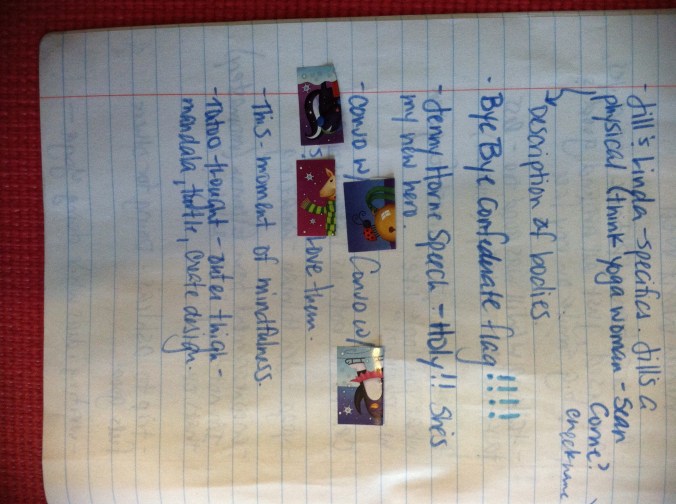 - Jill's Linda - specifies. Jill's a
physical (think yoga woman - Sean
Corne?
Description of bodies.
· Bye Bye Confederate flag!!!!
- Jenny Horne Speech - Holy!! She's
my new hero.
- Convo w/ Convo w/
Love them.
- This - moment of mindfulness.
- Tatoo thought - outer thigh -
mandala, turtle, create design.